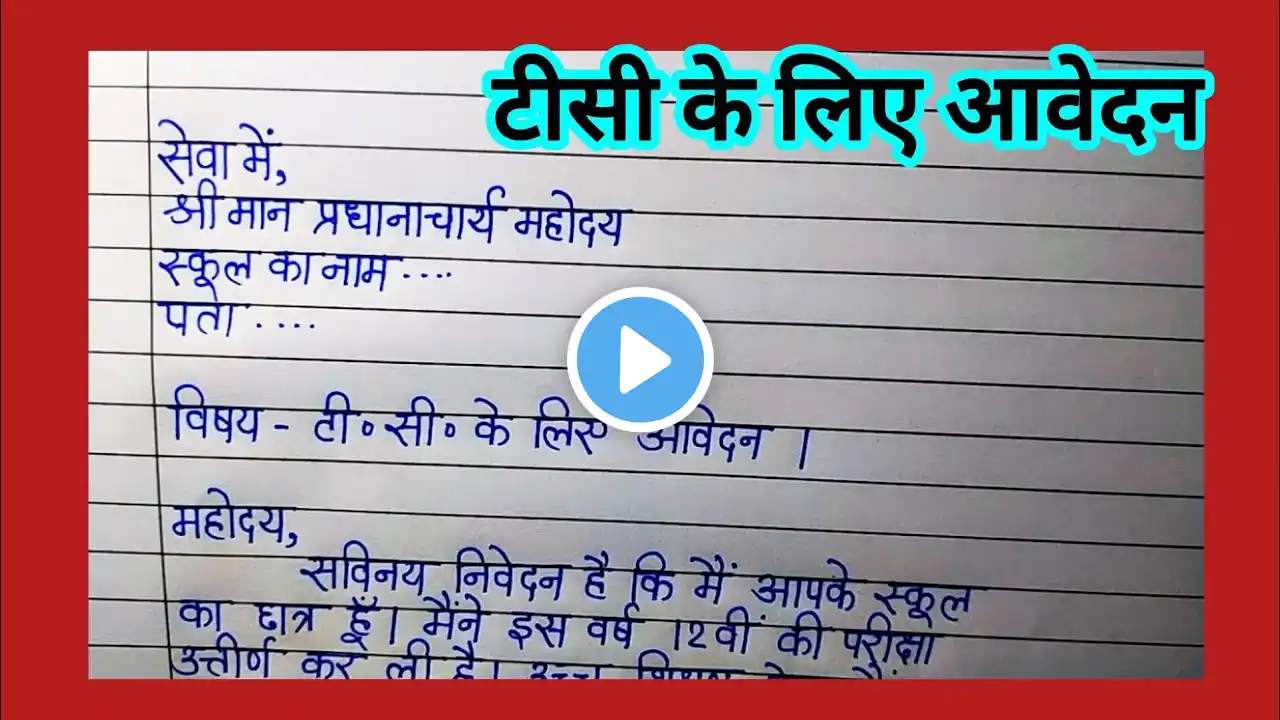 टीसी के लिए आवेदन
सेवा में,
श्री मान प्रधानाचार्य महोदय
स्कूल का नाम ....
पता ....
विषय - टी॰ सी॰ के लिए आवेदन ।
महोदय,
सविनय निवेदन है कि मैं आपके स्कूल
का छात्र हूँ। मैंने इस वर्ष 12वीं की परीक्षा
उत्तीर्ण कर ली है।